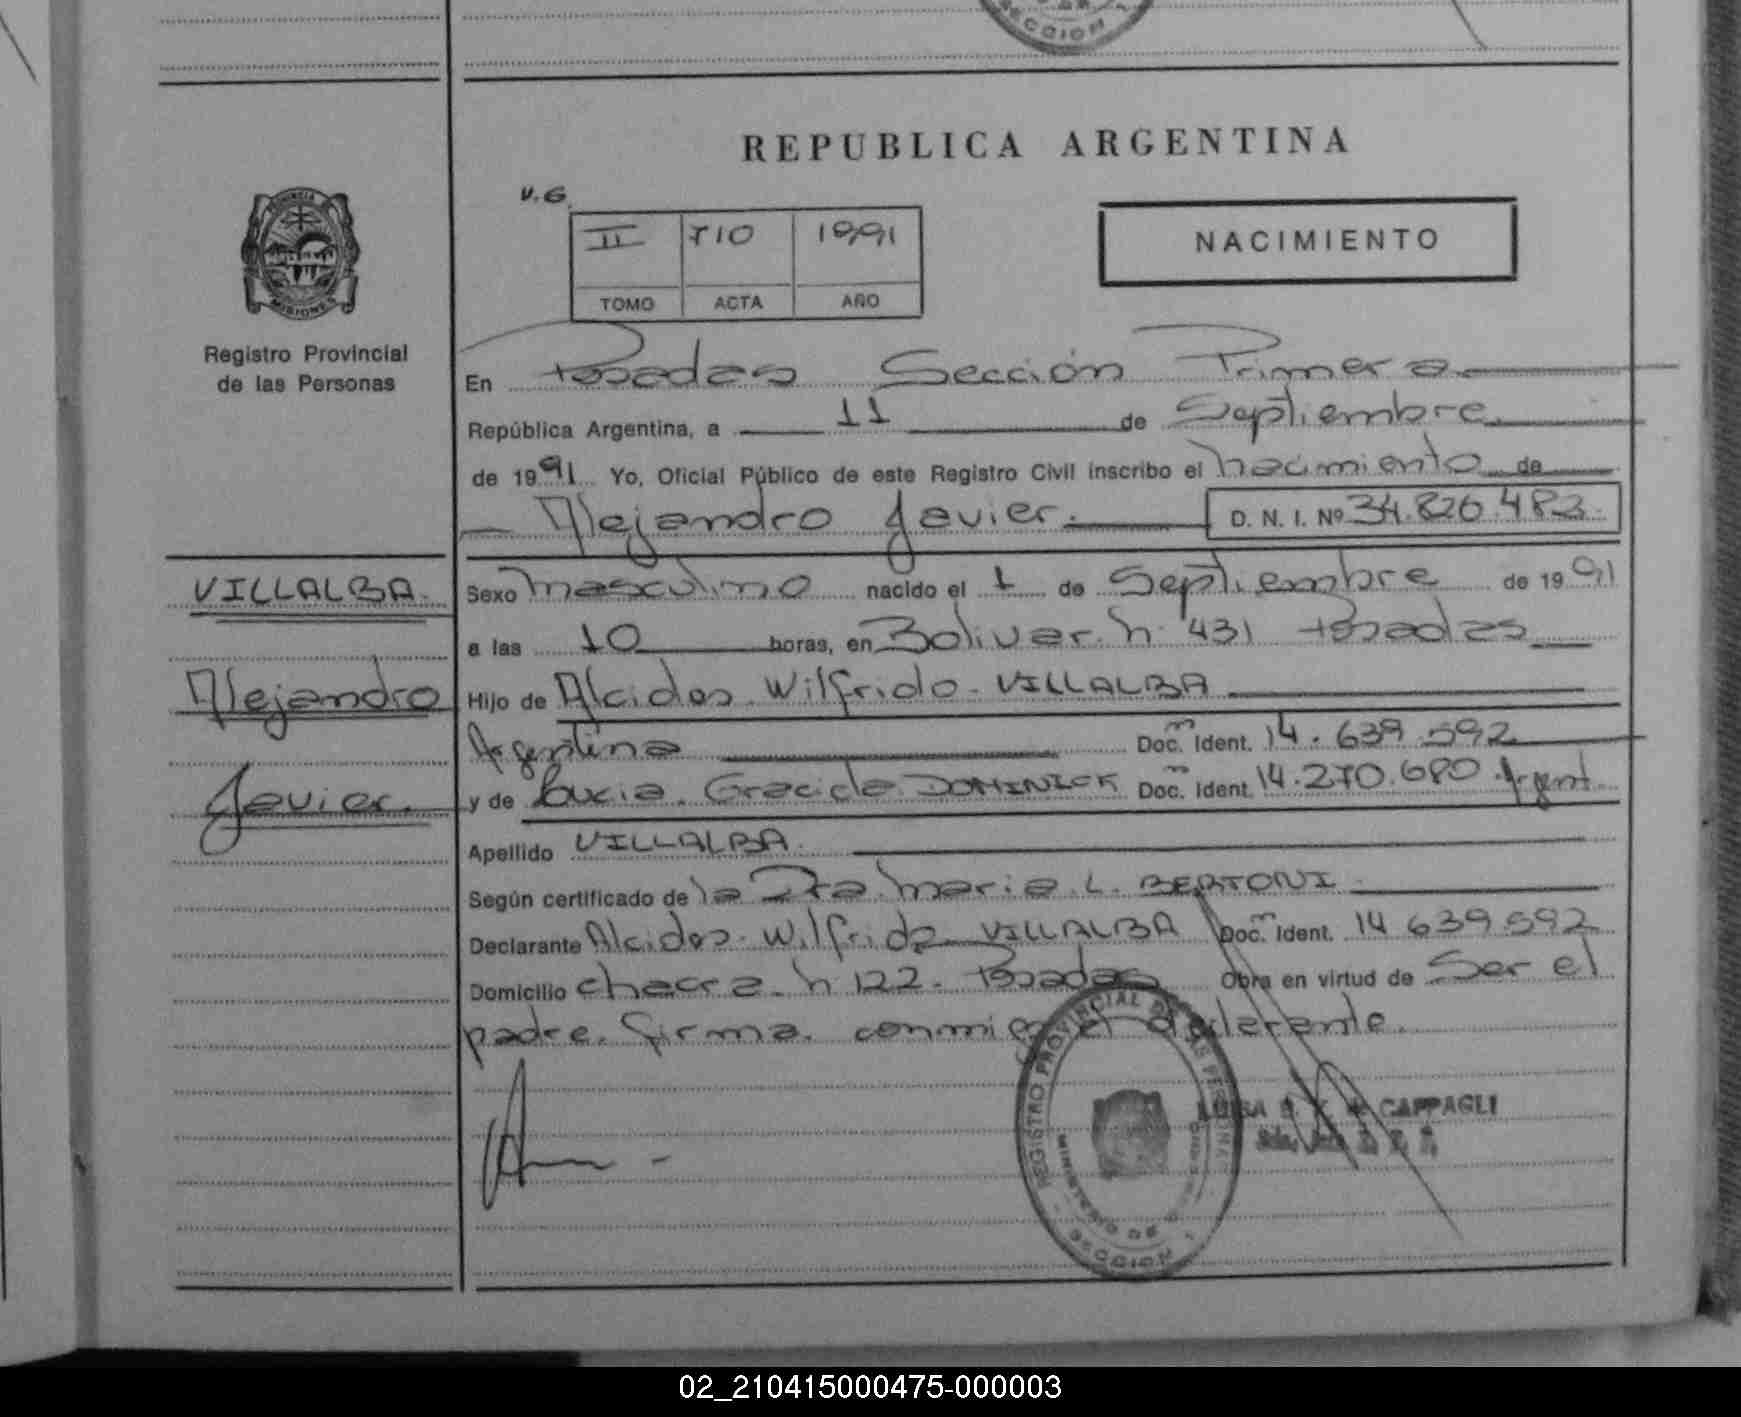 SECCION 1
REPUBLICA ARGENTINA
V.G.
II 710 1991
TOMO ACTA AÑO
NACIMIENTO
PROVINCIA
MISIONES
Registro Provincial
de las Personas
En Posadas Sección Primera
República Argentina, a 11 de Septiembre
de 1991 Yo, Oficial Público de este Registro Civil inscribo el nacimiento de
Alejandro Javier. D. N. I. Nº 34.826.482.
VILLALBA
Alejandro
Javier.
Sexo masculino nacido el 1 de Septiembre de 1991
a las 10 horas, en Bolivar n 431 Posadas
Hijo de Alcides Wilfrido VILLALBA
Argentina Doc. Ident. 14.639.592
y de Lucia Graciela DOMINICK Doc. Ident. 14.270.680 Argent.
Apellido VILLALBA.
Según certificado de la Dra. Maria L. BERTONI
Declarante Alcides Wilfrido VILLALBA Doc. Ident. 14 639.592
Domicilio chacra n 122. Posadas Obra en virtud de Ser el
padre. firma conmigo el declarante.
REGISTRO PROVINCIAL DE LAS PERSONAS
MINISTERIO DE
SECCION 1
CAPPAGLI
02_210415000475-000003